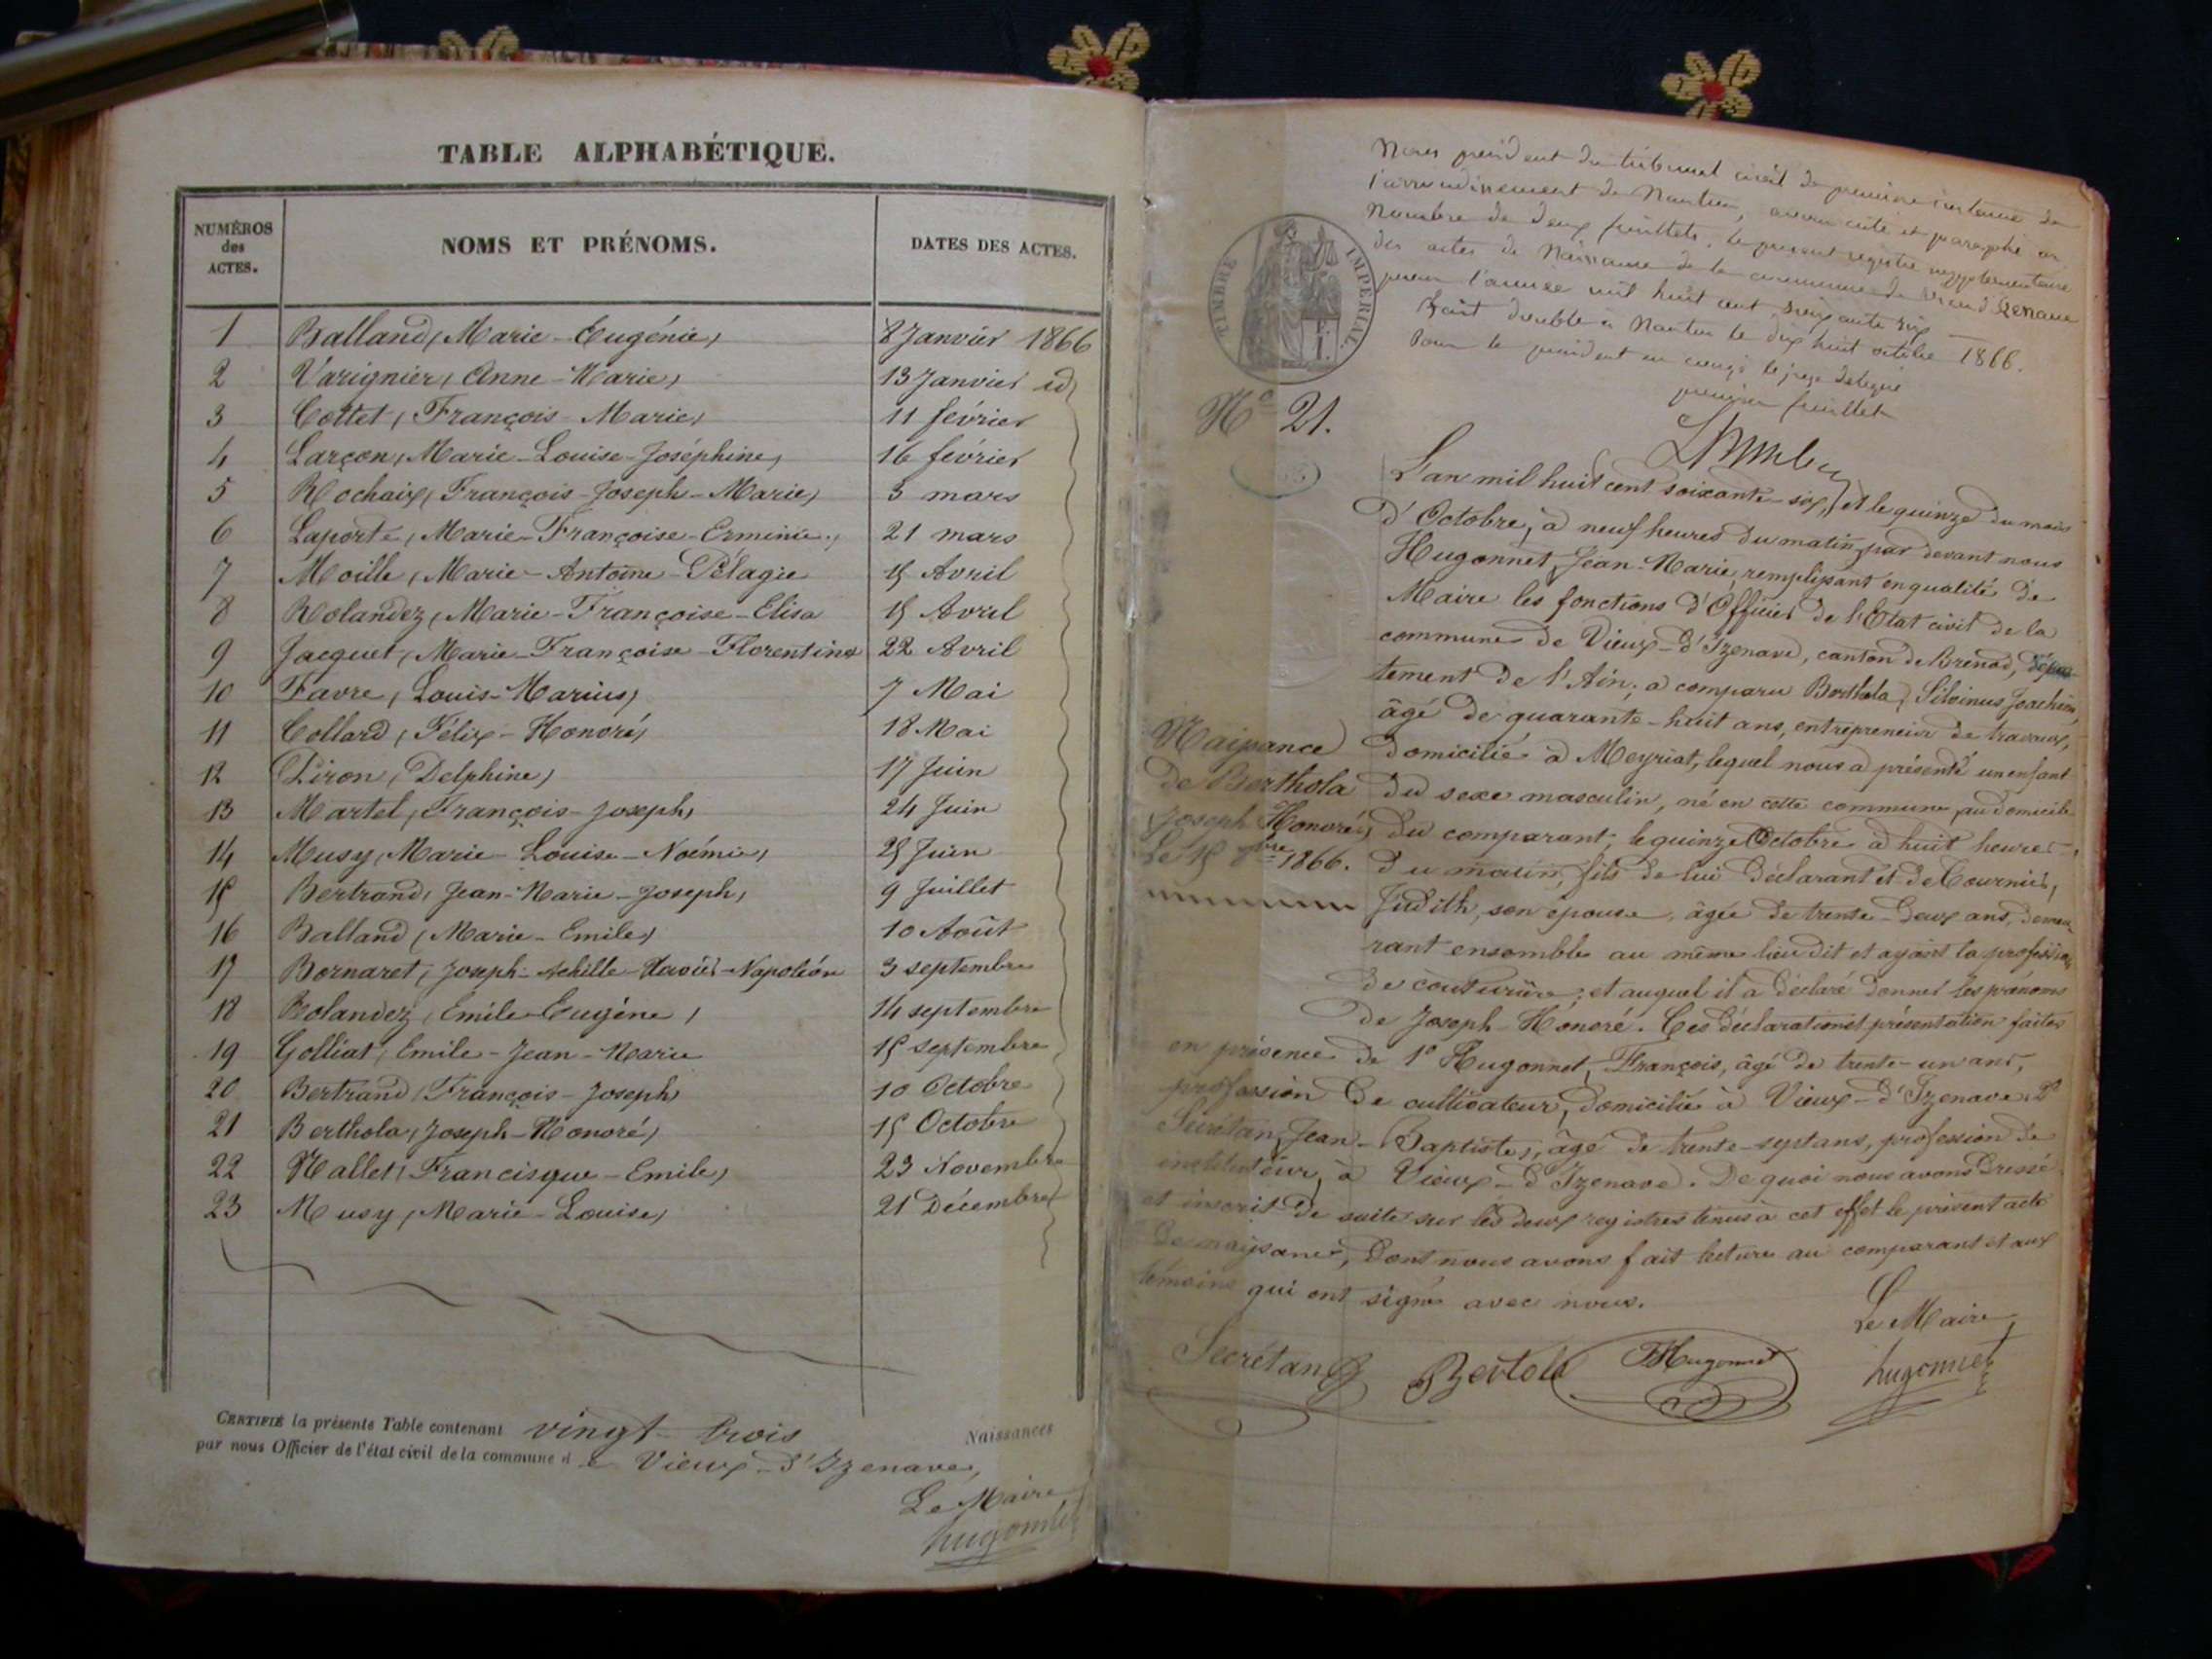 TABLE ALPHABÉTIQUE.
NUMÉROS des ACTES.
NOMS ET PRÉNOMS.
DATES DES ACTES.
1 Balland, Marie-Eugénie, 8 Janvier 1866
2 Varignier, Anne-Marie, 13 Janvier id
3 Cottet, François-Marie, 11 février
4 Larçon, Marie-Louise-Joséphine, 16 février
5 Rochaix, François-Joseph-Marie, 5 mars
6 Laporte, Marie-Françoise-Erminie, 21 mars
7 Moille, Marie-Antoine-Pélagie 15 Avril
8 Rolandez, Marie-Françoise-Elisa 15 Avril
9 Jacquet, Marie-Françoise-Florentine 22 Avril
10 Favre, Louis-Marius, 7 Mai
11 Collard, Félix-Honoré, 18 Mai
12 Piron, Delphine, 17 Juin
13 Martel, François-Joseph, 24 Juin
14 Musy, Marie-Louise-Noémie, 25 Juin
15 Bertrand, Jean-Marie-Joseph, 9 Juillet
16 Balland, Marie-Emile, 10 Août
17 Bornaret, Joseph-Achille-Xavier-Napoléon 3 septembre
18 Rolandez, Emile-Eugène, 14 septembre
19 Golliat, Emile-Jean-Marie 15 septembre
20 Bertrand, François-Joseph 10 Octobre
21 Berthola, Joseph-Honoré, 15 Octobre
22 Mallet, Francisque-Emile, 23 Novembre
23 Musy, Marie-Louise, 21 Décembre
CERTIFIÉ la présente Table contenant vingt-trois Naissances
par nous Officier de l'état civil de la commune de Vieux-d'Izenave,
Le Maire,
hugonnet
Nous président du tribunal civil de première instance de
l'arrondissement de Nantua, avons coté et paraphé au
nombre de deux feuillets, le présent registre supplémentaire
des actes de Naissance de la commune de Vieux d'Izenave
pour l'année mil huit cent soixante six
Fait double à Nantua le dix huit octobre 1866.
Pour le président en congé le juge délégué
premier feuillet
TIMBRE IMPÉRIAL.
No 21.
L'an mil huit cent soixante-six, et le quinze du mois
d'Octobre, à neuf heures du matin, par devant nous
Hugonnet, Jean-Marie, remplissant en qualité de
Maire les fonctions d'Officier de l'Etat civil de la
commune de Vieux-d'Izenave, canton de Brénod, dépar-
tement de l'Ain, a comparu Berthola, Silvinus Joachim,
âgé de quarante-huit ans, entrepreneur de travaux,
domicilié à Meyriat, lequel nous a présenté un enfant
du sexe masculin, né en cette commune, au domicile
du comparant, le quinze Octobre à huit heures
du matin, fils de lui déclarant et de Cournier,
Judith, son épouse, âgée de trente-deux ans, demeu-
rant ensemble au même lieu dit et ayant la profession
de couturière, et auquel il a déclaré donner les prénoms
de Joseph-Honoré. Ces déclaration et présentation faites
en présence de 1o Hugonnet, François, âgé de trente-un ans,
profession de cultivateur, domicilié à Vieux-d'Izenave. 2o
Secrétan, Jean-Baptiste, âgé de trente-sept ans, profession de
instituteur, à Vieux-d'Izenave. De quoi nous avons dressé
et inscrit de suite sur les deux registres tenus à cet effet le présent acte
de naissance, dont nous avons fait lecture au comparant et aux
témoins qui ont signé avec nous.
Naissance
de Berthola
Joseph Honoré,
Le 15 8bre 1866.
Le Maire,
Secrétan Bertola Hugonnet hugonnet